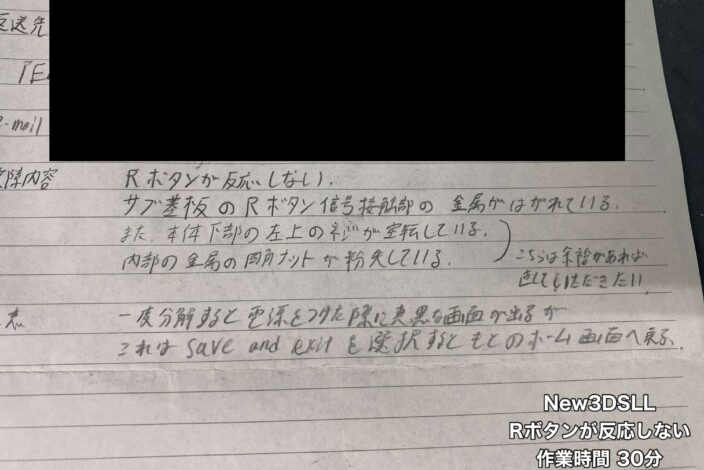 返送先
TE
e-mail
故障内容 Rボタンが反応しない.
サブ基板のRボタン信号接触部の金属がはがれている.
また、本体下部の左上のネジが空転している.
内部の金属の四角ナットが紛失している.
こちらは余裕があれば
直していただきたい
意 一度分解すると電源をつけた際に真黒な画面が出るが
これは save and exit を選択するともとのホーム画面へ戻る.
New3DSLL
Rボタンが反応しない
作業時間 30分